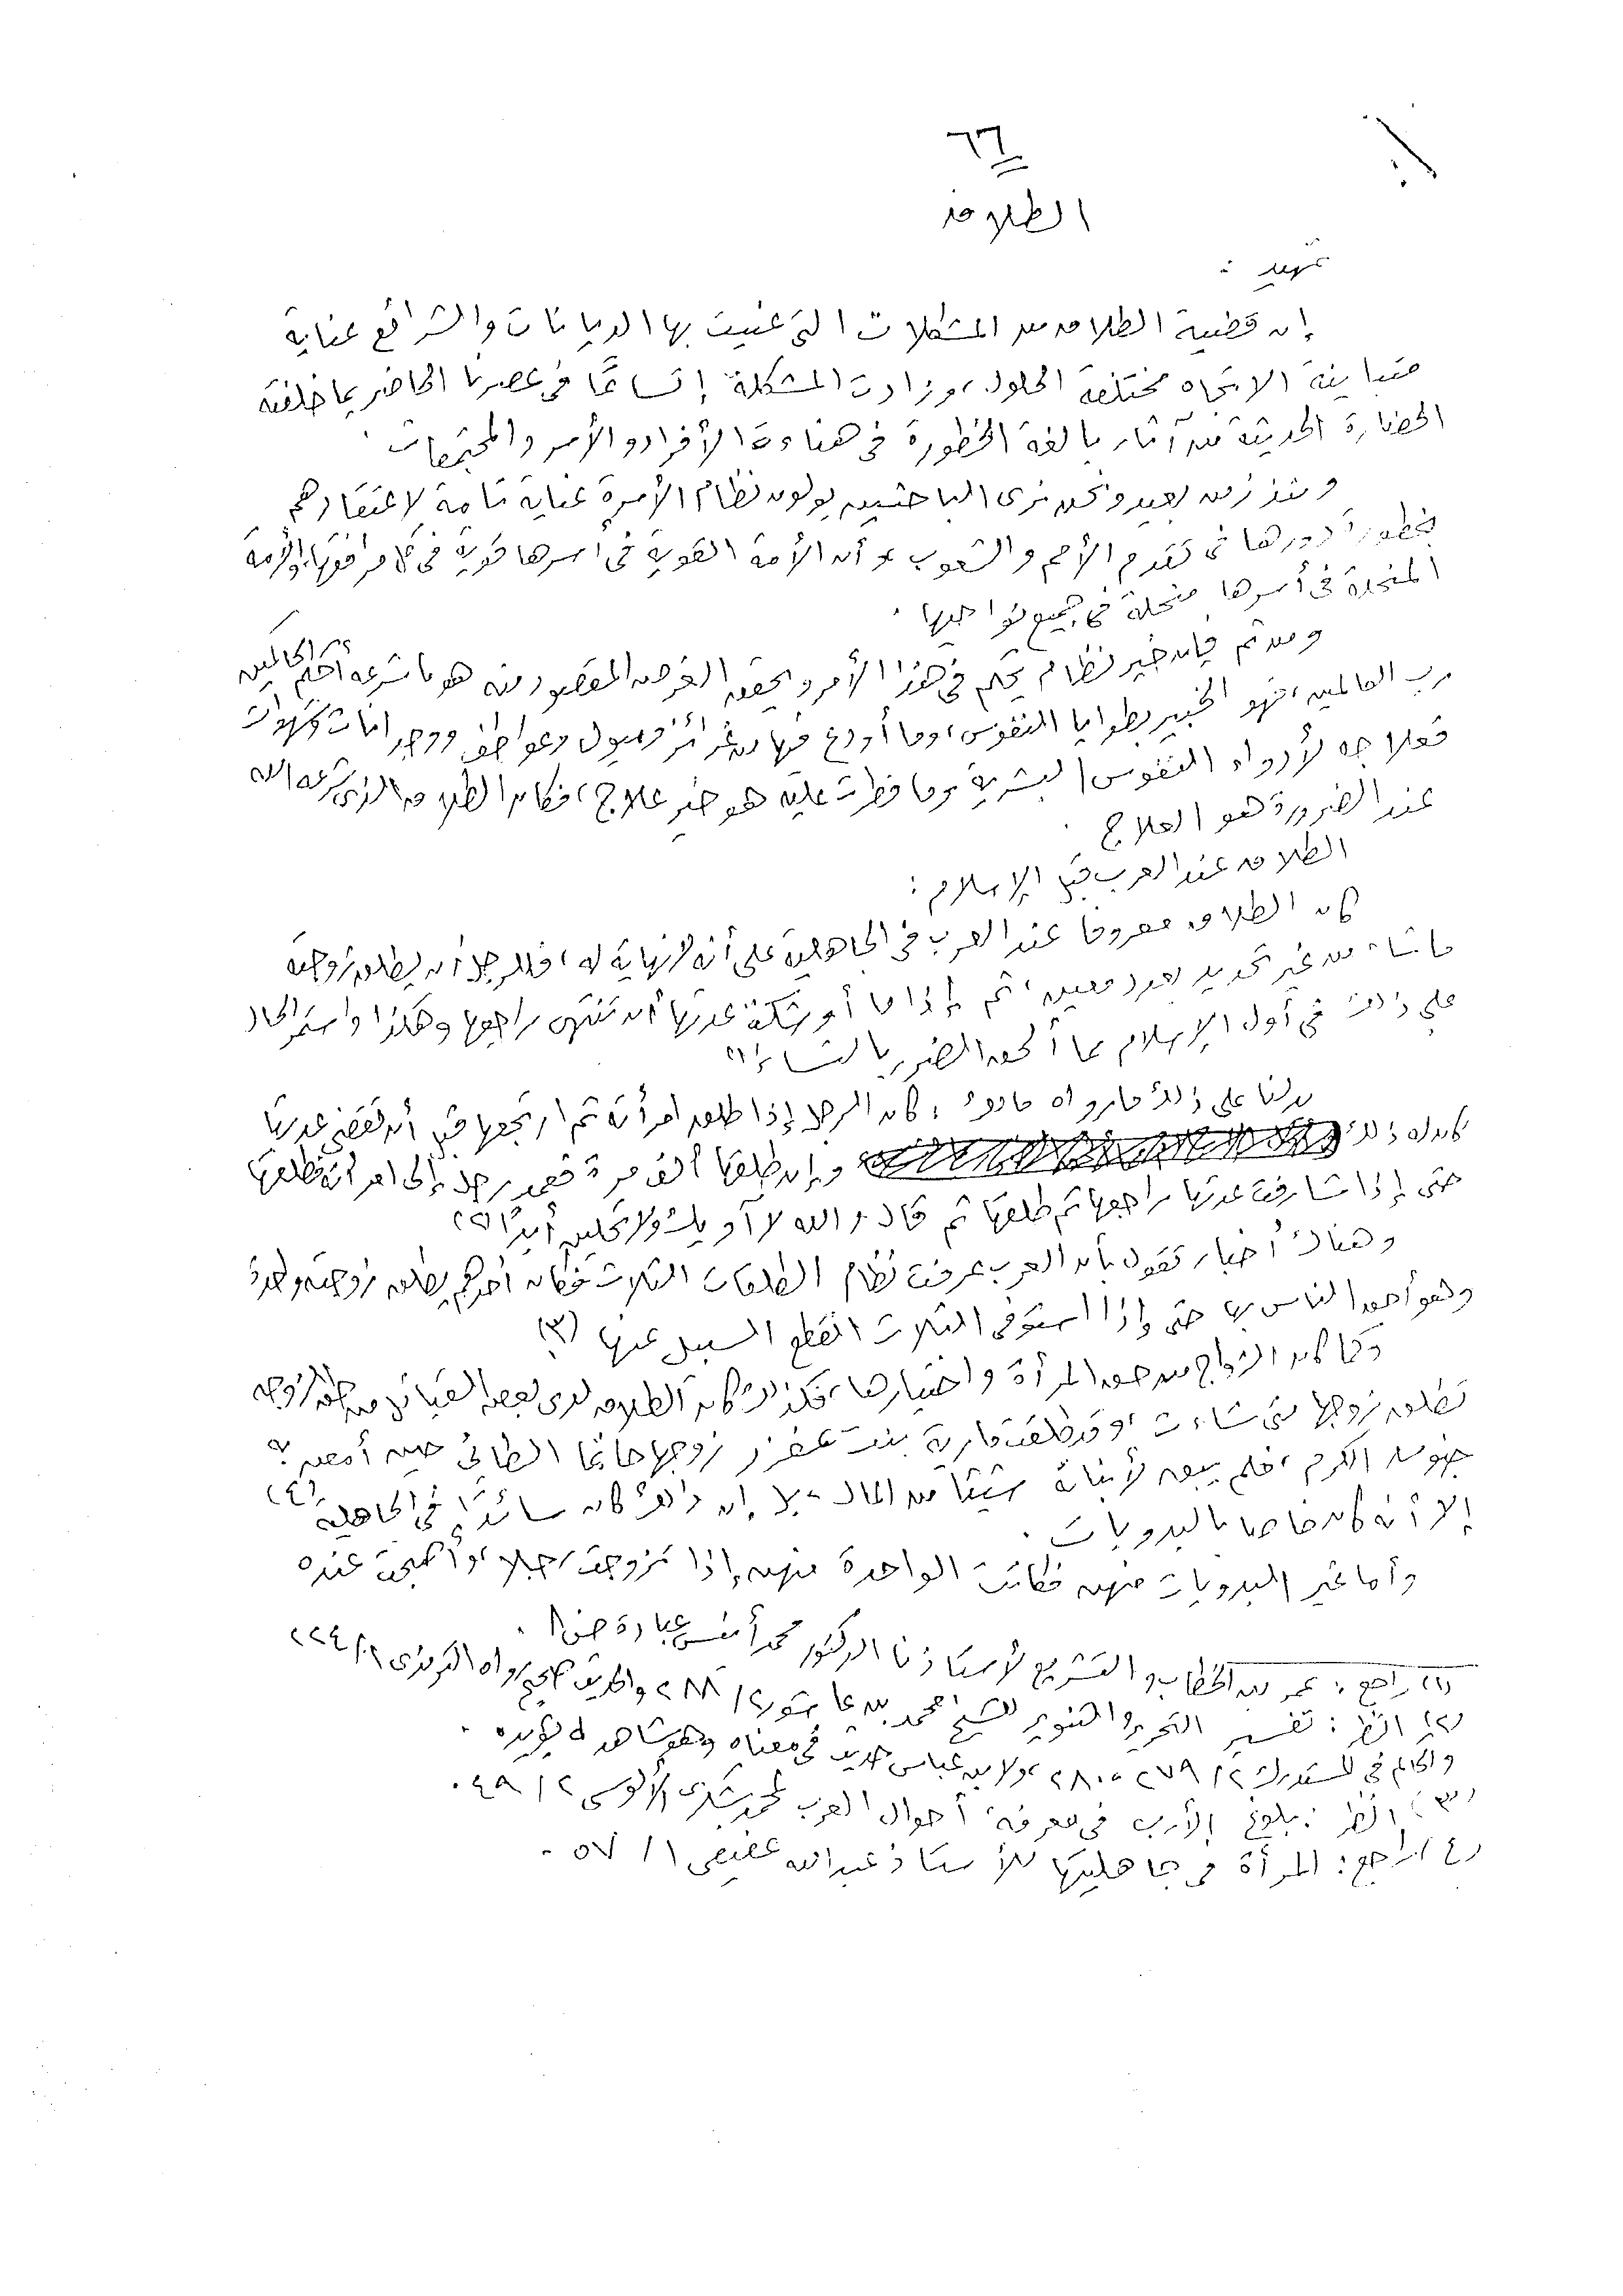 ٦٦
الطلاق
تمهيد :
إن قضية الطلاق من المشكلات التي عنيت بها الديانات والشرائع عناية
متباينة الاتجاه مختلفة الحلول، وزادت المشكلة إتساعًا في عصرنا الحاضر بما خلفته
الحضارة الحديثة من آثار بالغة الخطورة في هناءة الأفراد والأسر والمجتمعات.
ومنذ زمن بعيد ونحن نرى الباحثين يولون نظام الأسرة عناية تامة لاعتقادهم
بخطورة دورها في تقدم الأمم والشعوب وأن الأمة القوية في أسرها قوية في كل مرافقها، والأمة
المنحلة في أسرها منحلة في جميع نواحيها.
ومن ثم فإن خير نظام يحكم في هذا الأمر ويحقق الغرض المقصود منه هو ما شرعه أحكم الحاكمين
رب العالمين، فهو الخبير بطوايا النفوس، وما أودع فيها من غرائز وميول وعواطف ووجدانات وشهوات
فعلاجه لأدواء النفوس البشرية وما فطرت عليه هو خير علاج، فكان الطلاق الذي شرعه الله
عند الضرورة هو العلاج.
الطلاق عند العرب قبل الإسلام :
كان الطلاق معروفا عند العرب في الجاهلية على أنه لا نهاية له، فللرجل أن يطلق زوجته
ما شاء من غير تحديد بعدد معين، ثم إذا ما أوشكت عدتها أن تنتهي راجعها وهكذا واستمر الحال
على ذلك في أول الإسلام مما ألحق الضرر بالنساء (١)
يدلنا على ذلك ما رواه مالك : كان الرجل إذا طلق امرأته ثم ارتجعها قبل أن تنقضي عدتها
كان له ذلك وإن طلقها ألف مرة فعمد رجل إلى امرأته فطلقها
حتى إذا شارفت عدتها راجعها ثم طلقها ثم قال والله لا آويك ولا تحلين أبدًا (٢)
وهناك أخبار تقول بأن العرب عرفت نظام الطلقات الثلاث فكان أحدهم يطلق زوجته واحدة
وهو أحق الناس بها حتى إذا استوفى الثلاث انقطع السبيل عنها (٣)
وكما كان الزواج من حق المرأة واختيارها، فكذلك كان الطلاق لدى بعض القبائل من حق الزوجة
تطلق زوجها متى شاءت، وقد طلقت مارية بنت عفزر زوجها حاتما الطائي حين أمعن به
جنون الكرم، فلم يبق لأبنائه شيئًا من المال - بل إن ذلك كان سائدًا في الجاهلية (٤)
إلا أنه كان خاصا بالبدويات.
وأما غير البدويات منهن فكانت الواحدة منهن إذا تزوجت رجلا، وأصبحت عنده
(١) راجع : عمر بن الخطاب والتشريع لأستاذنا الدكتور محمد أنيس عبادة ص ٨١.
(٢) انظر : تفسير التحرير والتنوير للشيخ محمد بن عاشور ٢ / ٢٨٨ والحديث صحيح رواه الترمذي ١ / ٢٢٤
والحاكم في المستدرك ٢ / ٢٧٩ - ٢٨٠، ولابن عباس حديث في معناه وهو شاهد له يؤيده.
(٣) انظر : بلوغ الأرب في معرفة أحوال العرب لمحمد شكري الألوسي ٢ / ٤٩.
(٤) راجع : المرأة في جاهليتها للأستاذ عبدالله عفيفي ١ / ٥٧.